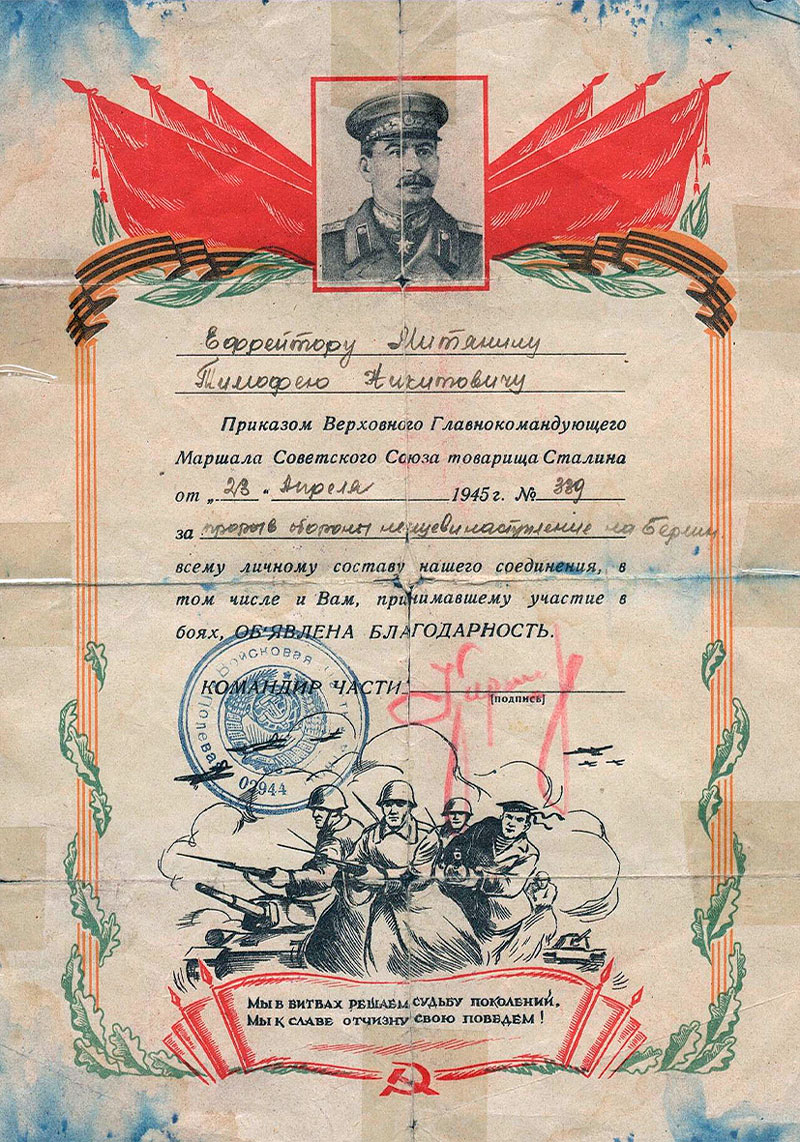 Ефрейтору Митянину
Тимофею Никитовичу
Приказом Верховного Главнокомандующего
Маршала Советского Союза товарища Сталина
от „23“ Апреля 1945 г. № 339
за прорыв обороны немцев и наступление на Берлин
всему личному составу нашего соединения, в
том числе и Вам, принимавшему участие в
боях, ОБ'ЯВЛЕНА БЛАГОДАРНОСТЬ.
КОМАНДИР ЧАСТИ
[подпись]
Полевая Войсковая
02944
МЫ В БИТВАХ РЕШАЕМ СУДЬБУ ПОКОЛЕНИЙ,
МЫ К СЛАВЕ ОТЧИЗНУ СВОЮ ПОВЕДЕМ!